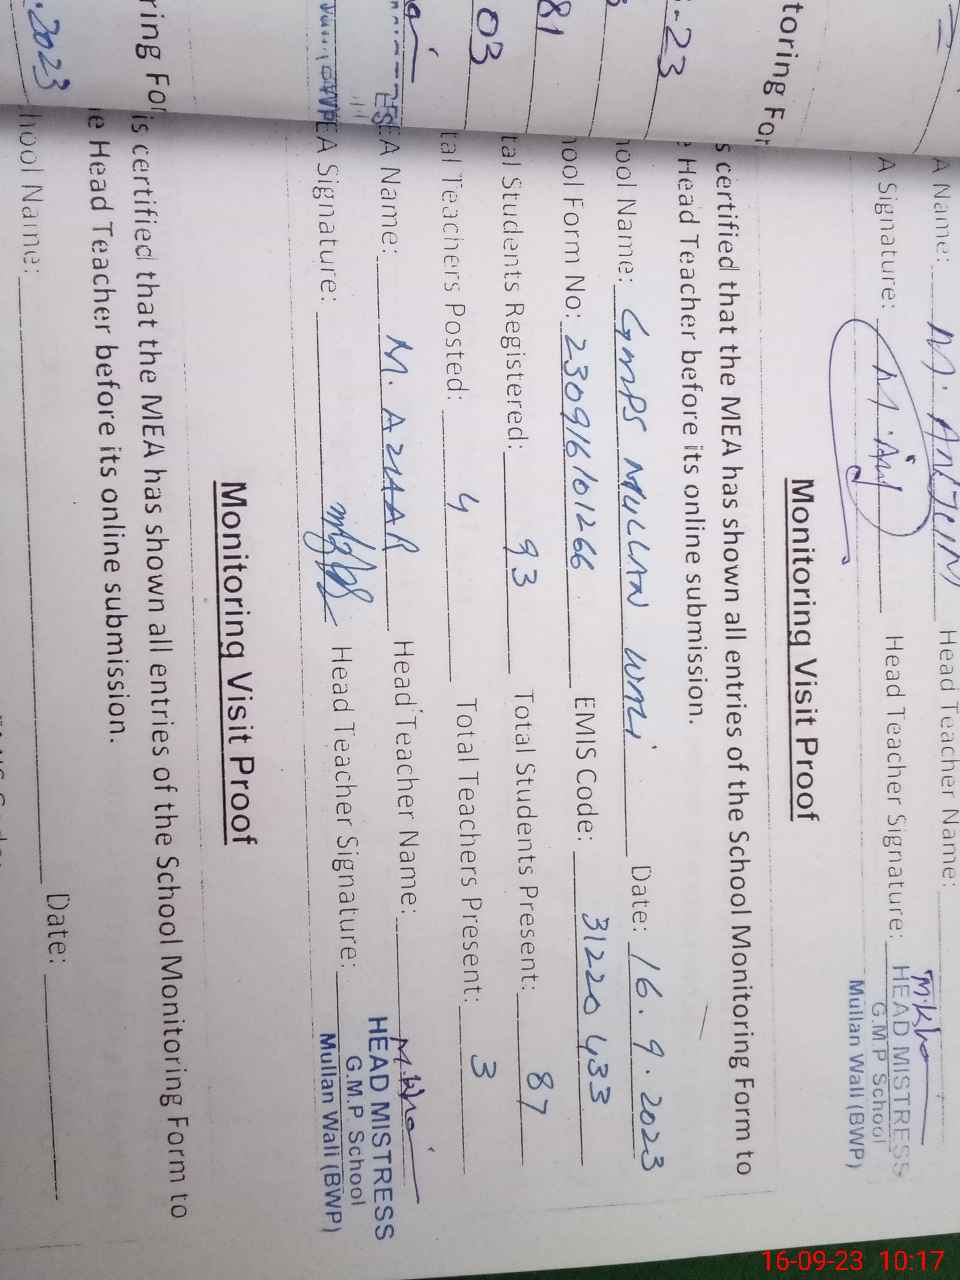 A Name: M. ANJUM Head Teacher Name:
A Signature: Head Teacher Signature:
HEAD MISTRESS
G.M.P School
Mullan Wali (BWP)
Monitoring Visit Proof
toring For
s certified that the MEA has shown all entries of the School Monitoring Form to
Head Teacher before its online submission.
hool Name: GMPS MULLAN WALI Date: 16.9.2023
hool Form No: 230916101266 EMIS Code: 31220433
tal Students Registered: 93 Total Students Present: 87
tal Teachers Posted: 4 Total Teachers Present: 3
EA Name: M. AZHAR Head Teacher Name:
EA Signature: Head Teacher Signature:
HEAD MISTRESS
G.M.P School
Mullan Wali (BWP)
Monitoring Visit Proof
ring For
is certified that the MEA has shown all entries of the School Monitoring Form to
e Head Teacher before its online submission.
hool Name: Date:
-23
81
03
.2023
16-09-23 10:17